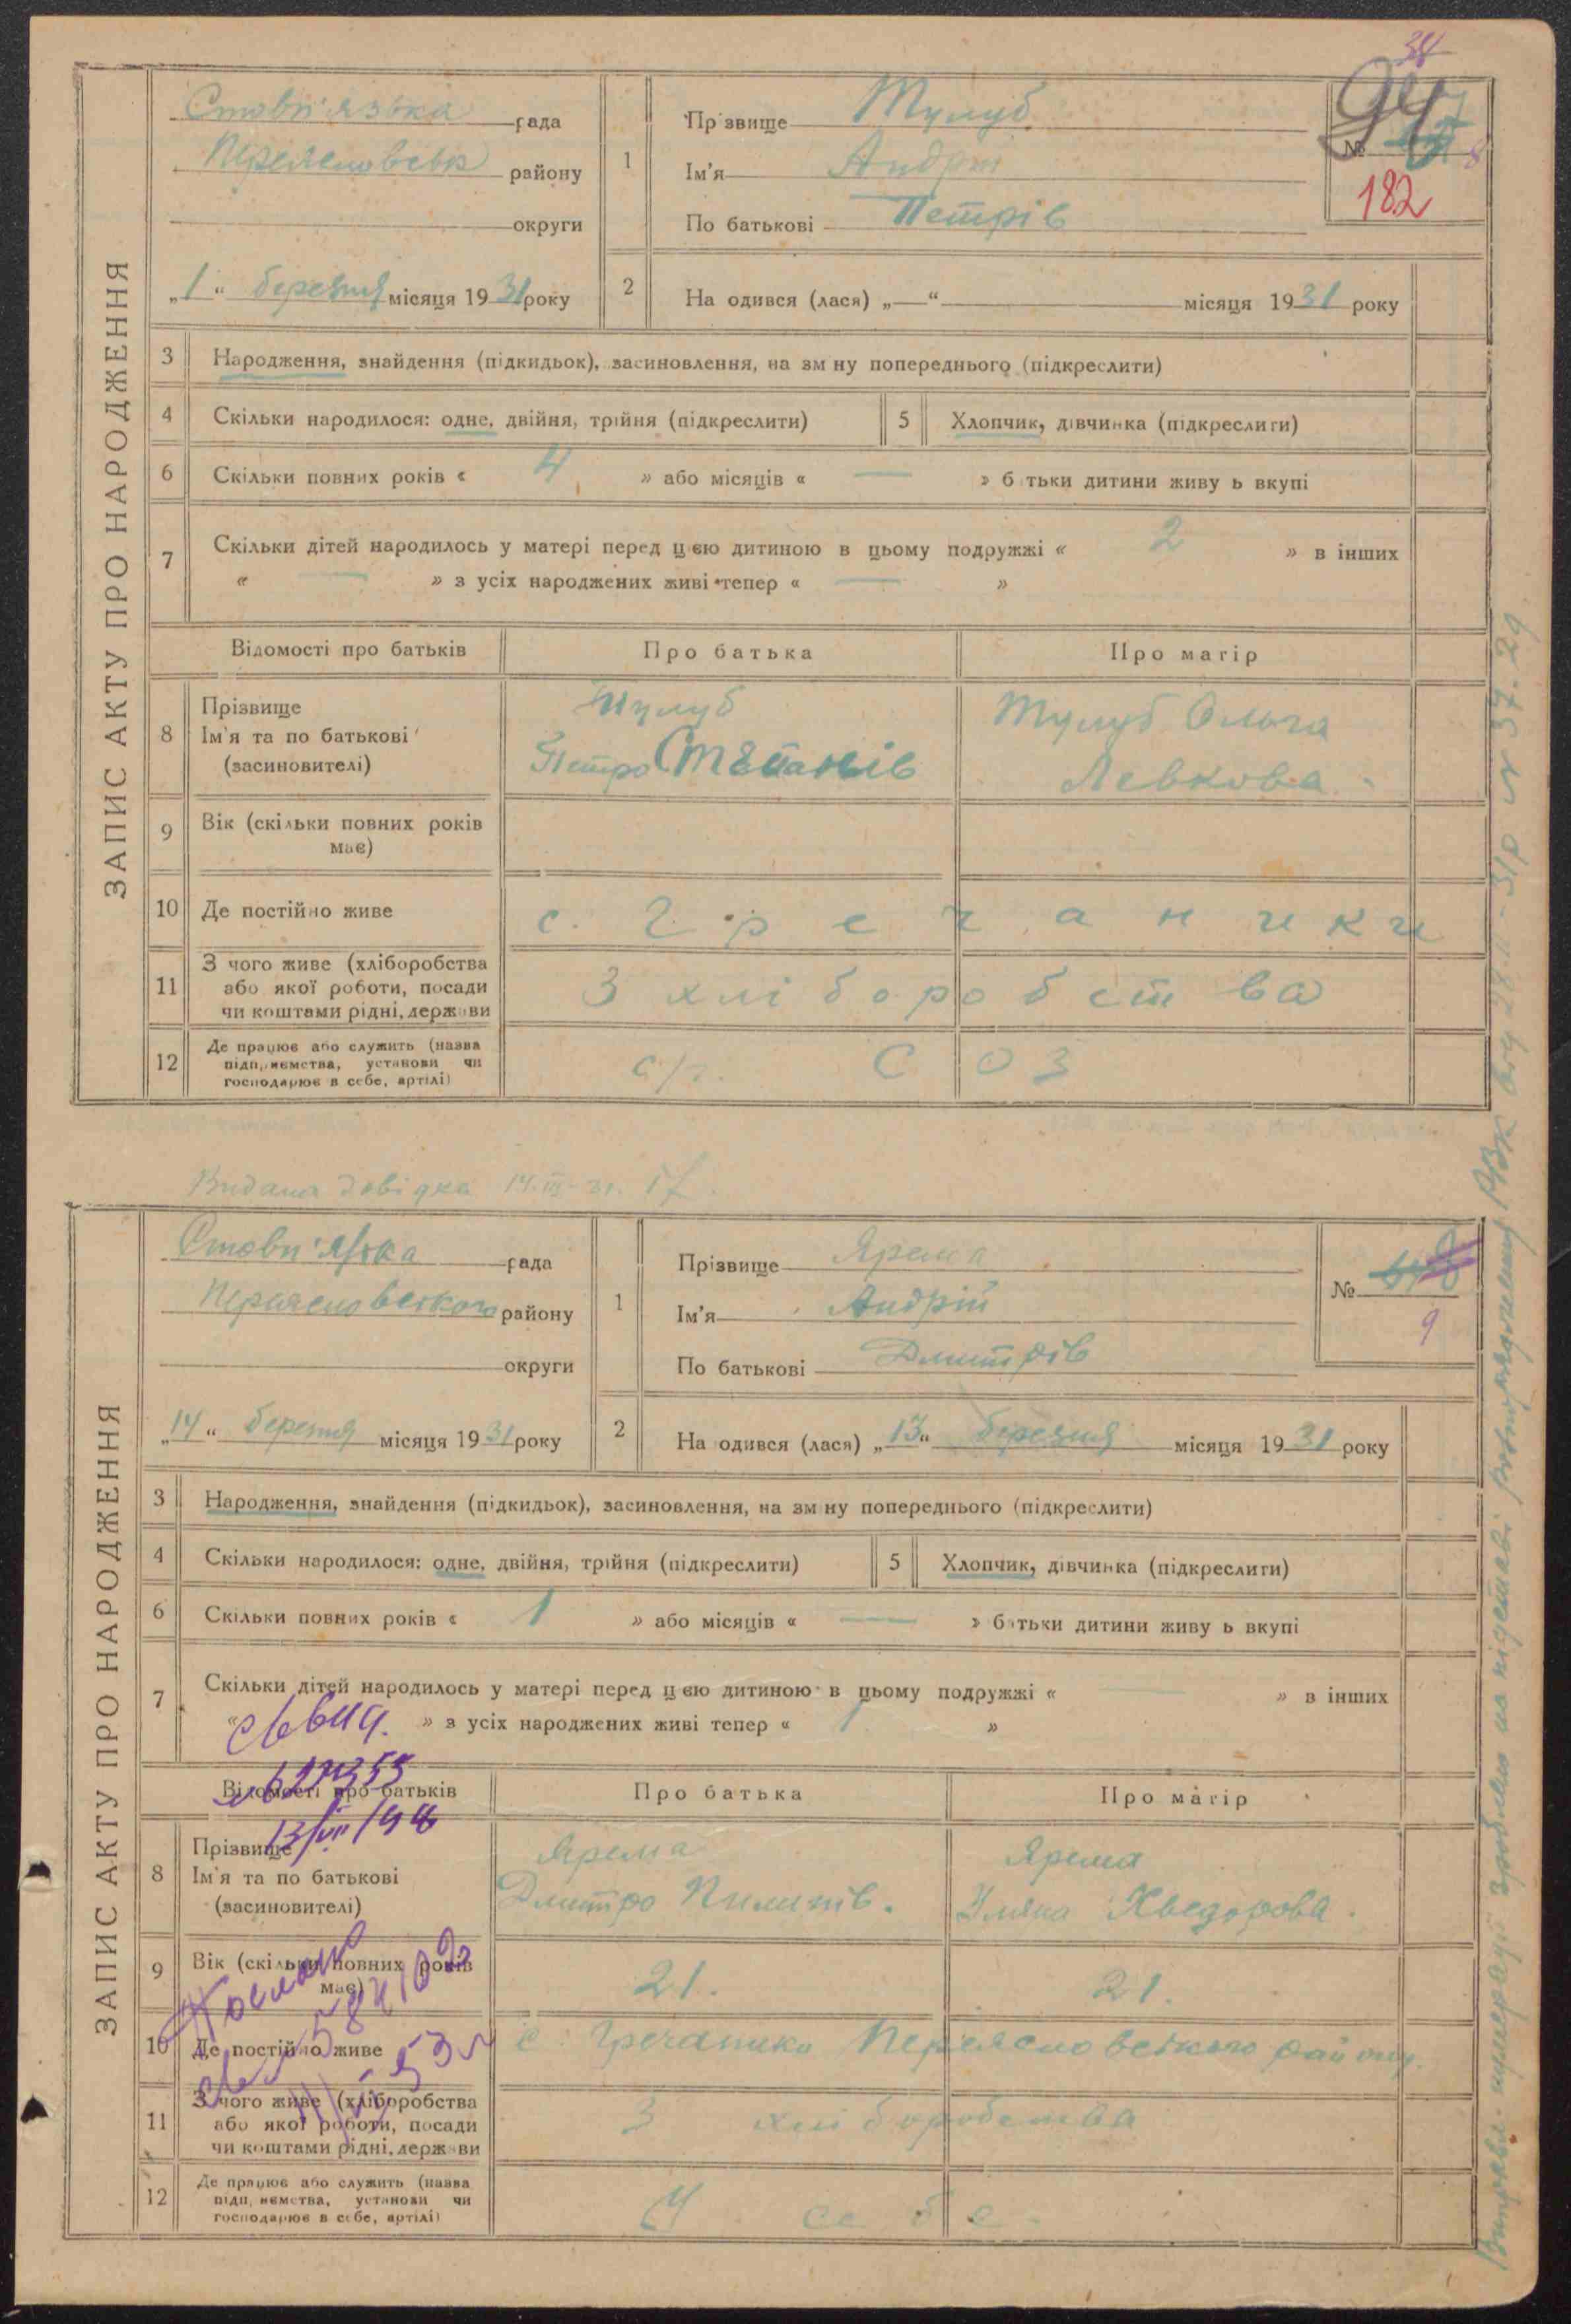 38
94
ЗАПИС АКТУ ПРО НАРОДЖЕННЯ
Стовп'язька рада
Переяславськ району
округи
„1“ березня місяця 1931 року
1
Прізвище Тулуб
Ім'я Андрій
По батькові Петрів
№ 8
182
2
На одився (лася) „—“ місяця 1931 року
3 Народження, знайдення (підкидьок), засиновлення, на зм ну попереднього (підкреслити)
4 Скільки народилося: одне, двійня, трійня (підкреслити) 5 Хлопчик, дівчинка (підкреслити)
6 Скільки повних років « 4 » або місяців « — » б тьки дитини живу ь вкупі
7 Скільки дітей народилось у матері перед цією дитиною в цьому подружжі « 2 » в інших
« — » з усіх народжених живі тепер « — »
Відомості про батьків Про батька Про матір
8 Прізвище Ім'я та по батькові (засиновителі)
Тулуб Петро Степанів
Тулуб Ольга Левкова
9 Вік (скільки повних років має)
10 Де постійно живе с. Гречаники
11 З чого живе (хліборобства або якої роботи, посади чи коштами рідні, держави
З хліборобства
12 Де працює або служить (назва підприємства, установи чи господарює в себе, артілі)
с/г. СОЗ
Видана довідка 14.III-31.
ЗАПИС АКТУ ПРО НАРОДЖЕННЯ
Стовп'язька рада
Переяславського району
округи
„14“ березня місяця 1931 року
1
Прізвище Ярема
Ім'я Андрій
По батькові Дмитрів
№
9
2
На одився (лася) „13“ березня місяця 1931 року
3 Народження, знайдення (підкидьок), засиновлення, на зм ну попереднього (підкреслити)
4 Скільки народилося: одне, двійня, трійня (підкреслити) 5 Хлопчик, дівчинка (підкреслити)
6 Скільки повних років « 1 » або місяців « — » батьки дитини живу ь вкупі
7 Скільки дітей народилось у матері перед цією дитиною в цьому подружжі « — » в інших
« » з усіх народжених живі тепер « 1 »
Відомості про батьків Про батька Про матір
8 Прізвище Ім'я та по батькові (засиновителі)
Ярема Дмитро Пилипів.
Ярема Уляна Хведорова.
9 Вік (скільки повних років має) 21. 21.
10 Де постійно живе с. Гречаники Переяславського району.
11 З чого живе (хліборобства або якої роботи, посади чи коштами рідні, держави
З хліборобства
12 Де працює або служить (назва підприємства, установи чи господарює в себе, артілі)
У себе.